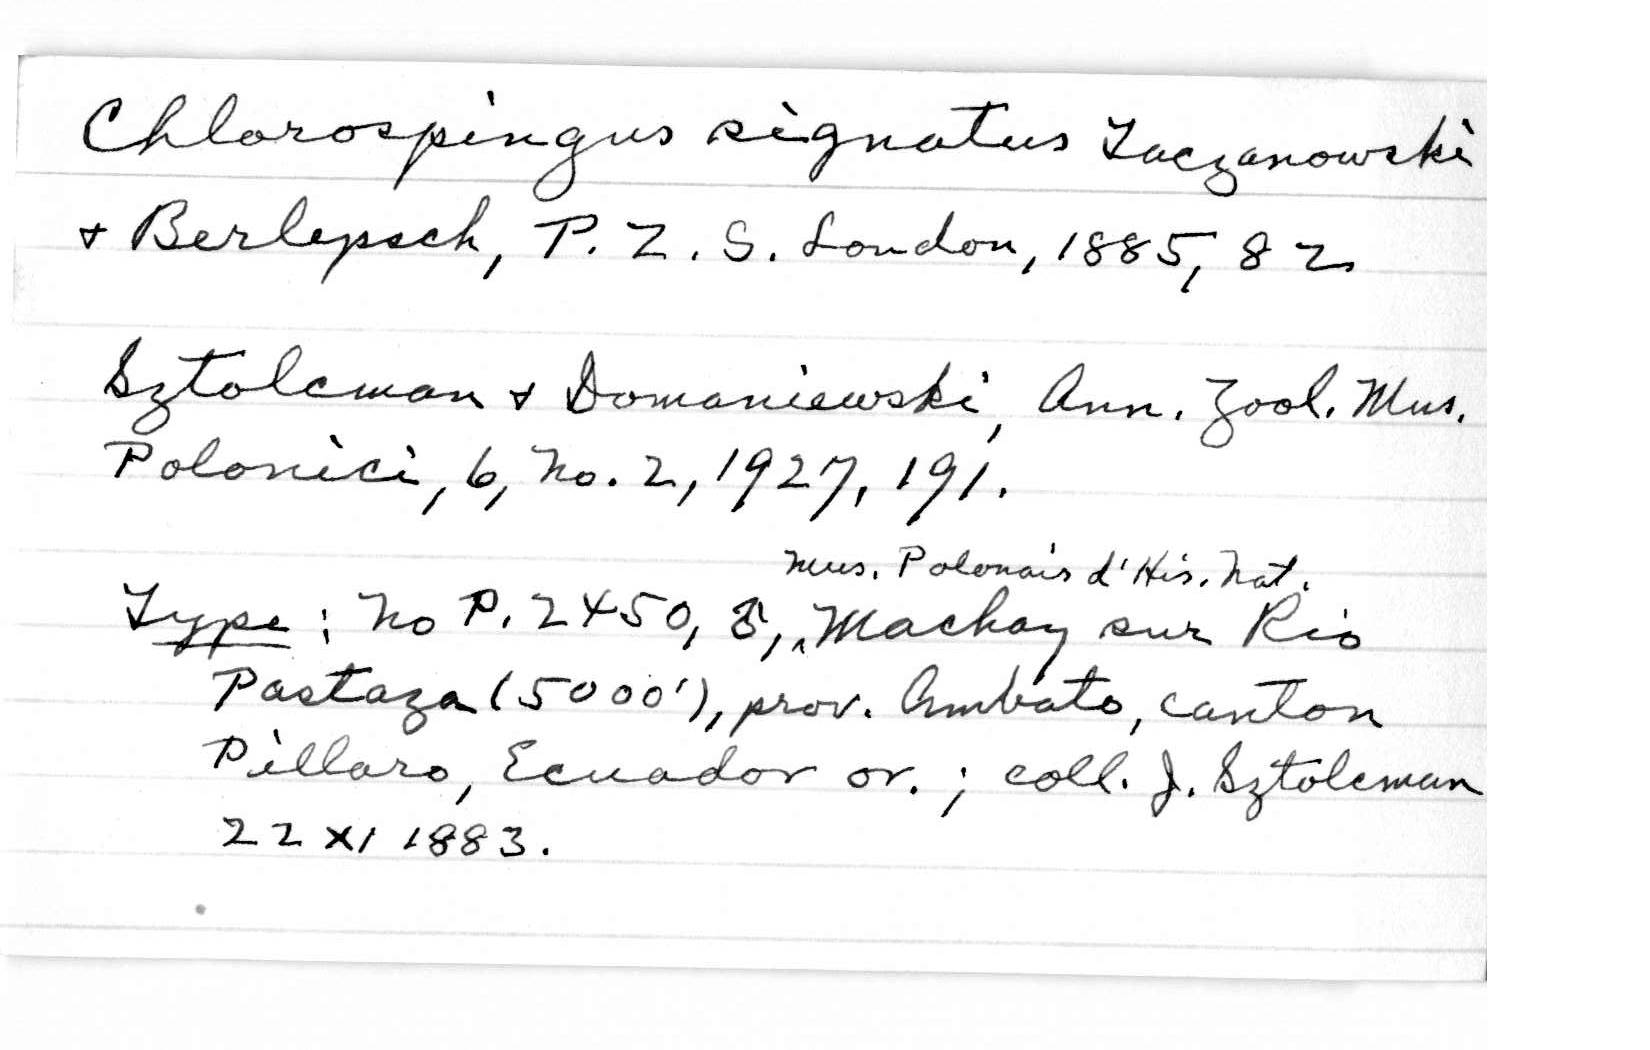 Chlorospingus signatus Taczanowski
& Berlepsch, P. Z. S. London, 1885, 82
Sztolcman & Domaniewski, Ann. Zool. Mus.
Polonici, 6, No. 2, 1927, 191.
Mus. Polonais d'His. Nat.
Type : No P. 2450, ♂, ‸Machay sur Rio
Pastaza (5000'), prov. Ambato, canton
Pillaro, Ecuador or. ; coll. J. Sztolcman
22 XI 1883.